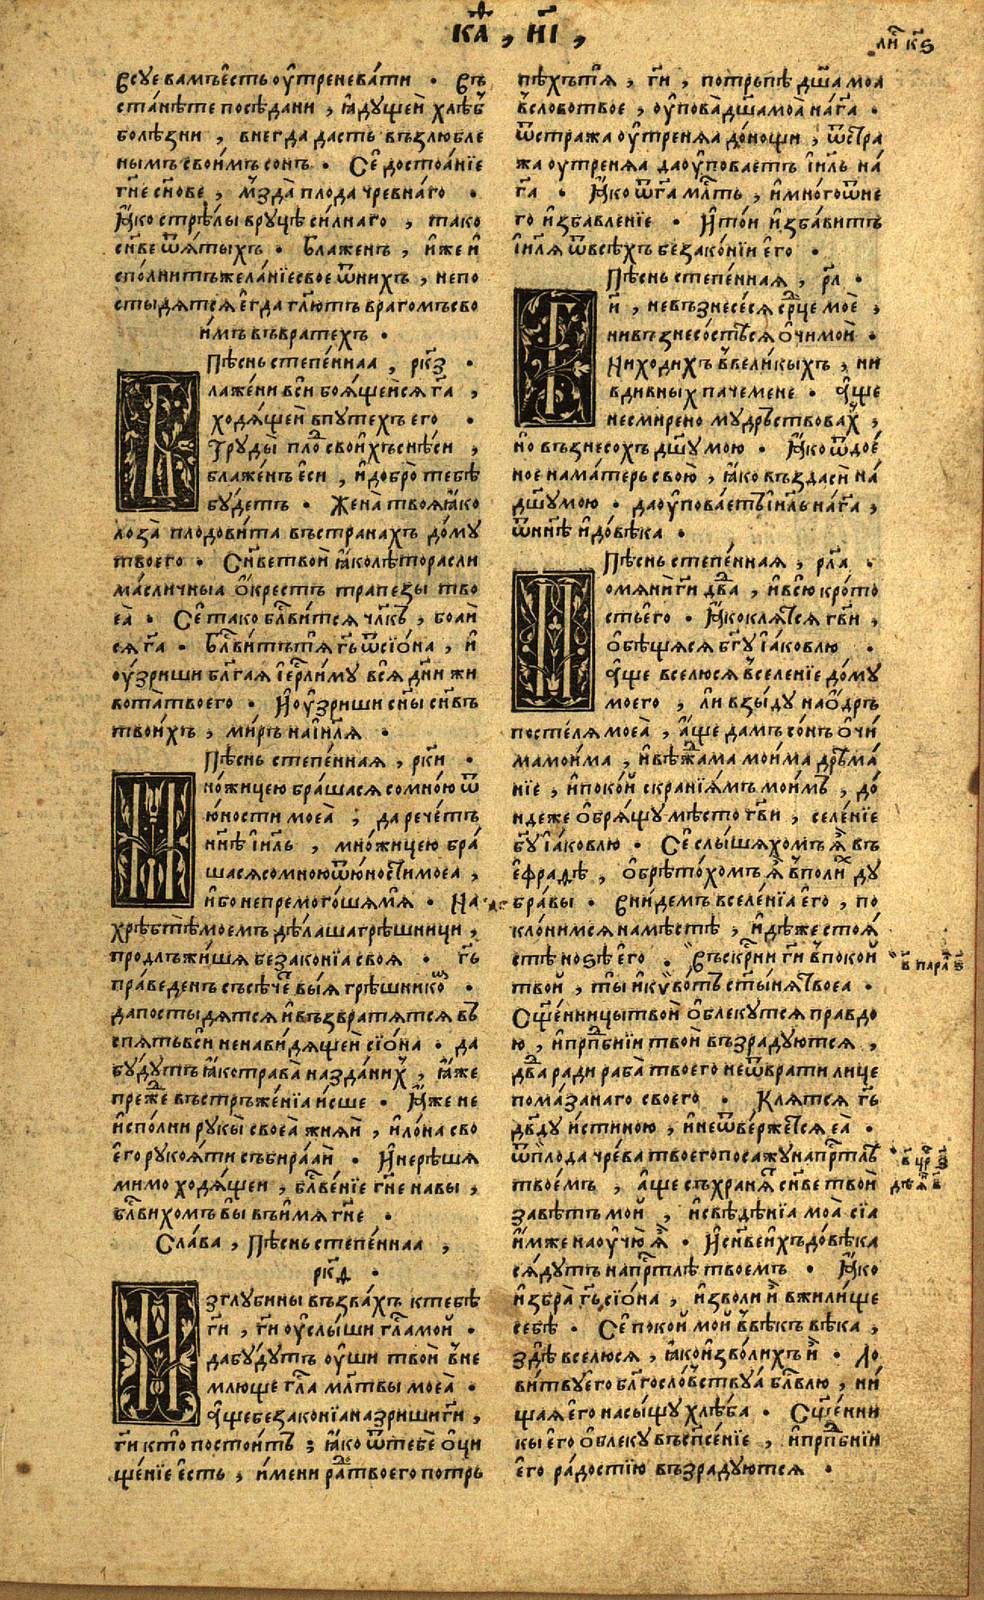 каѳ, н҃і,
лиⷭ҇ к҃ѕ
всуе вамъ є҆сть оу҆треневати . въ
станѣте поседани , ꙗ҆дущеи хлѣбъ
болѣзни , внегда дасть възлюбле
нымъ своимъ сонъ . Се достоаніе
гн҃е сн҃ове , мзда плода чревнаго .
Ꙗ҆ко стрѣлы вруцѣ силнаго , тако
сн҃ве ѿꙗтыхъ . Блаженъ , иже и
сполнитъ желаніе свое ѿнихъ , непо
стыдятся егда гл҃ютъ врагомъ сво
имъ въвратехъ .
Пѣснь степеннаа , рк҃з .
Блажени вси боящеися га҃ ,
ходящеи впутехъ его .
Труды плоⷣ своихъ снѣси ,
блаженъ еси , и добро тебѣ
будетъ . Жена твоя ꙗко
лоза плодовита въстранахъ дому
твоего . Сн҃ве твои ꙗко лѣторасли
масличныа окрестъ трапезы тво
еа . Се тако блⷭ҇витъся чл҃къ , боаи
ся га҃ . Блⷭ҇витътя гь҃ ѿсіона , и
оузриши блг҃ая іерⷭ҇лиму вся дн҃и жи
вота твоего . И оузриши сн҃ы сн҃въ
твоихъ , миръ на іи҃ля .
Пѣснь степенная , рк҃и .
Множицею брашася сомною ѿ
юности моеа ; да речетъ
нн҃ѣ іи҃ль , множицею бра
шася сомною ѿюности моеа ,
ибо непремогошямя . На
хребтѣ моемъ дѣлаша грѣшници ,
продлъжишя безаконіа своя . гь҃
праведенъ съсѣче выя грѣшникоⷨ .
да постыдятся и възвратятся въ
спять вси ненавидящеи сіона . да
будутъ ꙗко траваназданиⷯ , ꙗже
преⷤе въстръженіа исше . Иже не
исполни рукы своеа жняи , и лона сво
его рукояти събираяи . И нерѣшя
мимо ходящеи , блⷭ҇веніе гн҃е навы ,
блⷭ҇вихомъ вы въимя гн҃е .
Слава , Пѣснь степеннаа ,
рк҃ѳ .
Изглубины възвахъ ктебѣ
ги҃ , ги҃ оуслыши гла҃ мой .
да будутъ оуши твои вне
млюще гла҃ млт҃вы моеа .
Аще безаконіа назриши ги҃ ,
ги҃ кто постоитъ ; ꙗко ѿтебе очи
щеніе есть , имени раⷣ твоего потрь
пѣхътя , ги҃ , потрьпѣ дш҃а моа
вслово твое , оупова дш҃а моа на га҃ .
ѿстража оутреняа до нощи , ѿстра
жа оутреняа да оуповаетъ іи҃ль на
га҃ . Ꙗко ѿга҃ млⷭ҇ть , и многоѿне
го избавленіе . И той избавитъ
іи҃ля ѿвсѣхъ безаконіи его .
Пѣснь степенная , рл҃ .
Ги҃ , невъзнесеся срⷣце мое ,
нивъзнесостѣся очи мои .
Ниходихъ ввеликыхъ , ни
вдивных паче мене . Аще
несмирено мудръствоваⷯ ,
но възнесохъ дш҃у мою . Ꙗко ѿдое
ное наматерь свою , ꙗко въздаси на
дш҃у мою . да оуповаетъ іи҃ль на га҃ ,
ѿнн҃ѣ и довѣка .
Пѣснь степенная , рл҃а .
Помяни ги҃ двⷣа , и всю крото
сть его . Ꙗко клятся гв҃и ,
обѣщяся бг҃у іаковлю .
Аще вселюся вселеніе дому
моего , ли взыду наодръ
постеля моеа , аще дамъ сонъ очи
мамоима , и вѣжⷣама моима дрѣма
ніе , и покой скраніямъ моимъ , до
идеже обрящу мѣсто гв҃и , селеніе
бг҃у іаковлю . Се слышяхомъ я въ
ефрадѣ , обрѣтохомъ я вполиⷯ ду
бравы . Внидемъ вселеніа его , по
клонимся намѣстѣ , идѣже стоя
стѣ нозѣ его . Въскрⷭ҇ни ги҃ впокой
твой , ты и кивотъ ст҃ыня твоеа .
Сщ҃енници твои облекутся правдо
ю , и прпⷣбніи твои възрадуются ,
двⷣа ради раба твоего неѿврати лице
помазанаго своего . Клятся гь҃
дв҃ду истиною , и неѿвержетъся еа .
ѿплода чрева твоего посажу напртⷭ҇лѣ
твоемъ , аще съхранят сн҃ве твои
завѣтъ мой , и свѣдѣніа моа сіа
имже научю я . И сн҃ве ихъ до вѣка
сядутъ напртⷭ҇лѣ твоемъ . Ꙗко
избра гь҃ сіона , изволи и вжилище
себѣ . Се покой мой ввѣкъ вѣка ,
здѣ вселюся , ꙗко изволихъ и . Ло
витву его блг҃ословⷭ҇твуа блⷭ҇влю , ни
щая его насыщу хлѣба . Сщ҃енни
кы его облеку въспсⷭ҇еніе , и прпⷣбніи
его радостію възрадуются .
в҃ пара҃ ѕ҃
в҃ црⷭ҇ з҃
дѣя҃ в҃